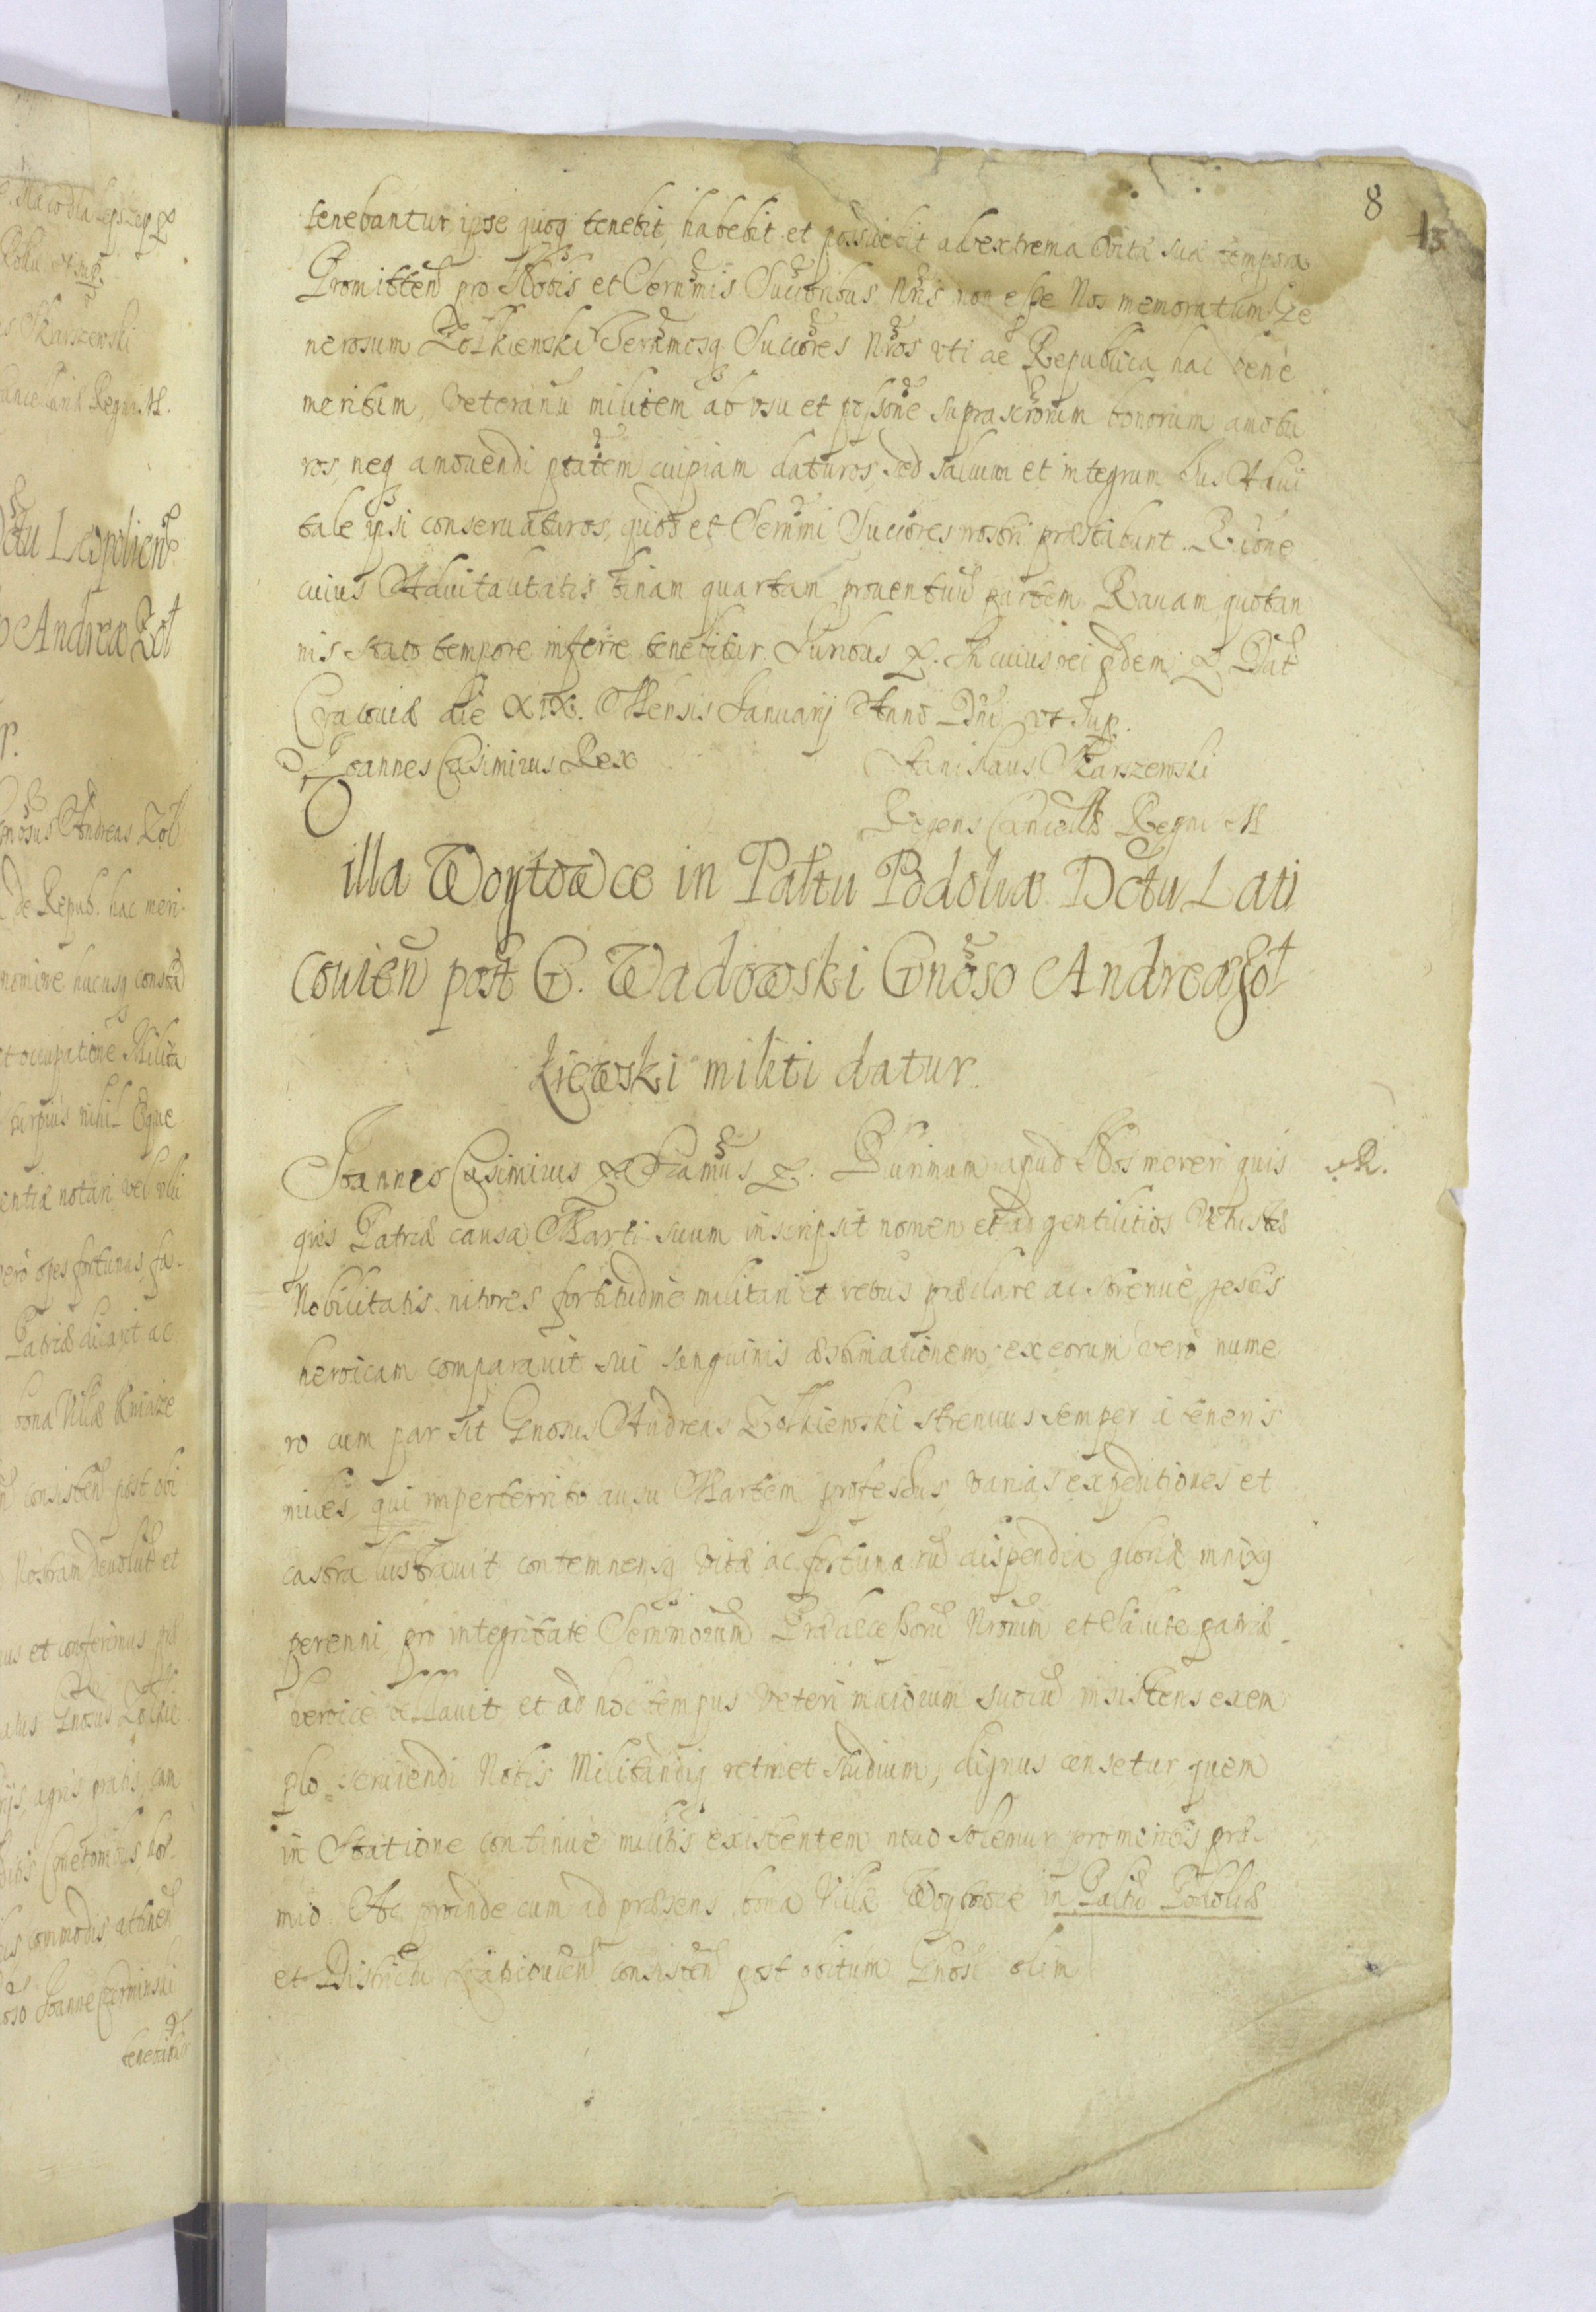 8
13
tenebantur ipse quoq tenebit, habebit et possidebit ad extrema vitæ suæ tempora
Promitten pro Nobis et Sernmis Succoribus Nris non esse Nos memoratum Ge
nerosum Zołkiewski Sernmosq Succores Nros vti de Republica hac bene
meritum, veteranu militem ab vsu et possone suprascrorum bonorum amotu
ros, neq amouendi ptatem cuipiam daturos, sed saluum et integrum Ius Adui
tale ipsi conseruaturos, quod et Sernmi Succores nostri præstabunt. Rõne
cuius Aduitalitatis binam quartam prouentuu partem Rauam quotan
nis stato tempore inferre tenebitur Iuribus &. In cuius rei fidem & Dat
Cracouiæ die XIX. Mensis Ianuarij Anno Dni vt sup.
Joannes Casimirus Rex
Stanislaus Skarszewski
Regens Cancellæ Regni M
illa Woytowce in Paltu Podoliæ Dctu Lati
couien post G. Wadowski Gnoso Andreæ Zoł
kiewski militi datur.
Joannes Casimirus & Sramus &. Plurimum apud Nos mereri quis
R.
quis Patriæ causa Marti suum inscripsit nomen et ad gentilitios vetustæ
Nobilitatis nitores fortitudine militari et rebus præclare ac strenue gestis
heroicam comparauit sui sanguinis æstimationem, ex eorum vero nume
ro cum par sit Gnosus Andreas Zołkiewski strenuus semper a teneris
miles, qui imperterrito ausu Martem professus varias expeditiones et
castra lustrauit contemnensq vitæ ac fortunaru dispendia gloriæ innixq
perenni pro integritate Sernmorum Prædecessoru Nrorum et salute patriæ
heroice bellauit et ad hoc tempus veteri maiorum suoru insistens exem
plo seruiendi Nobis Militandiq retinet studium, dignus censetur quem
in Statione continue militis existentem
mio Ac proinde cum ad præsens bona Villæ Woytowce in Paltu Podoliæ
et Districtu Laticouien consisten post obitum Gnosi olim